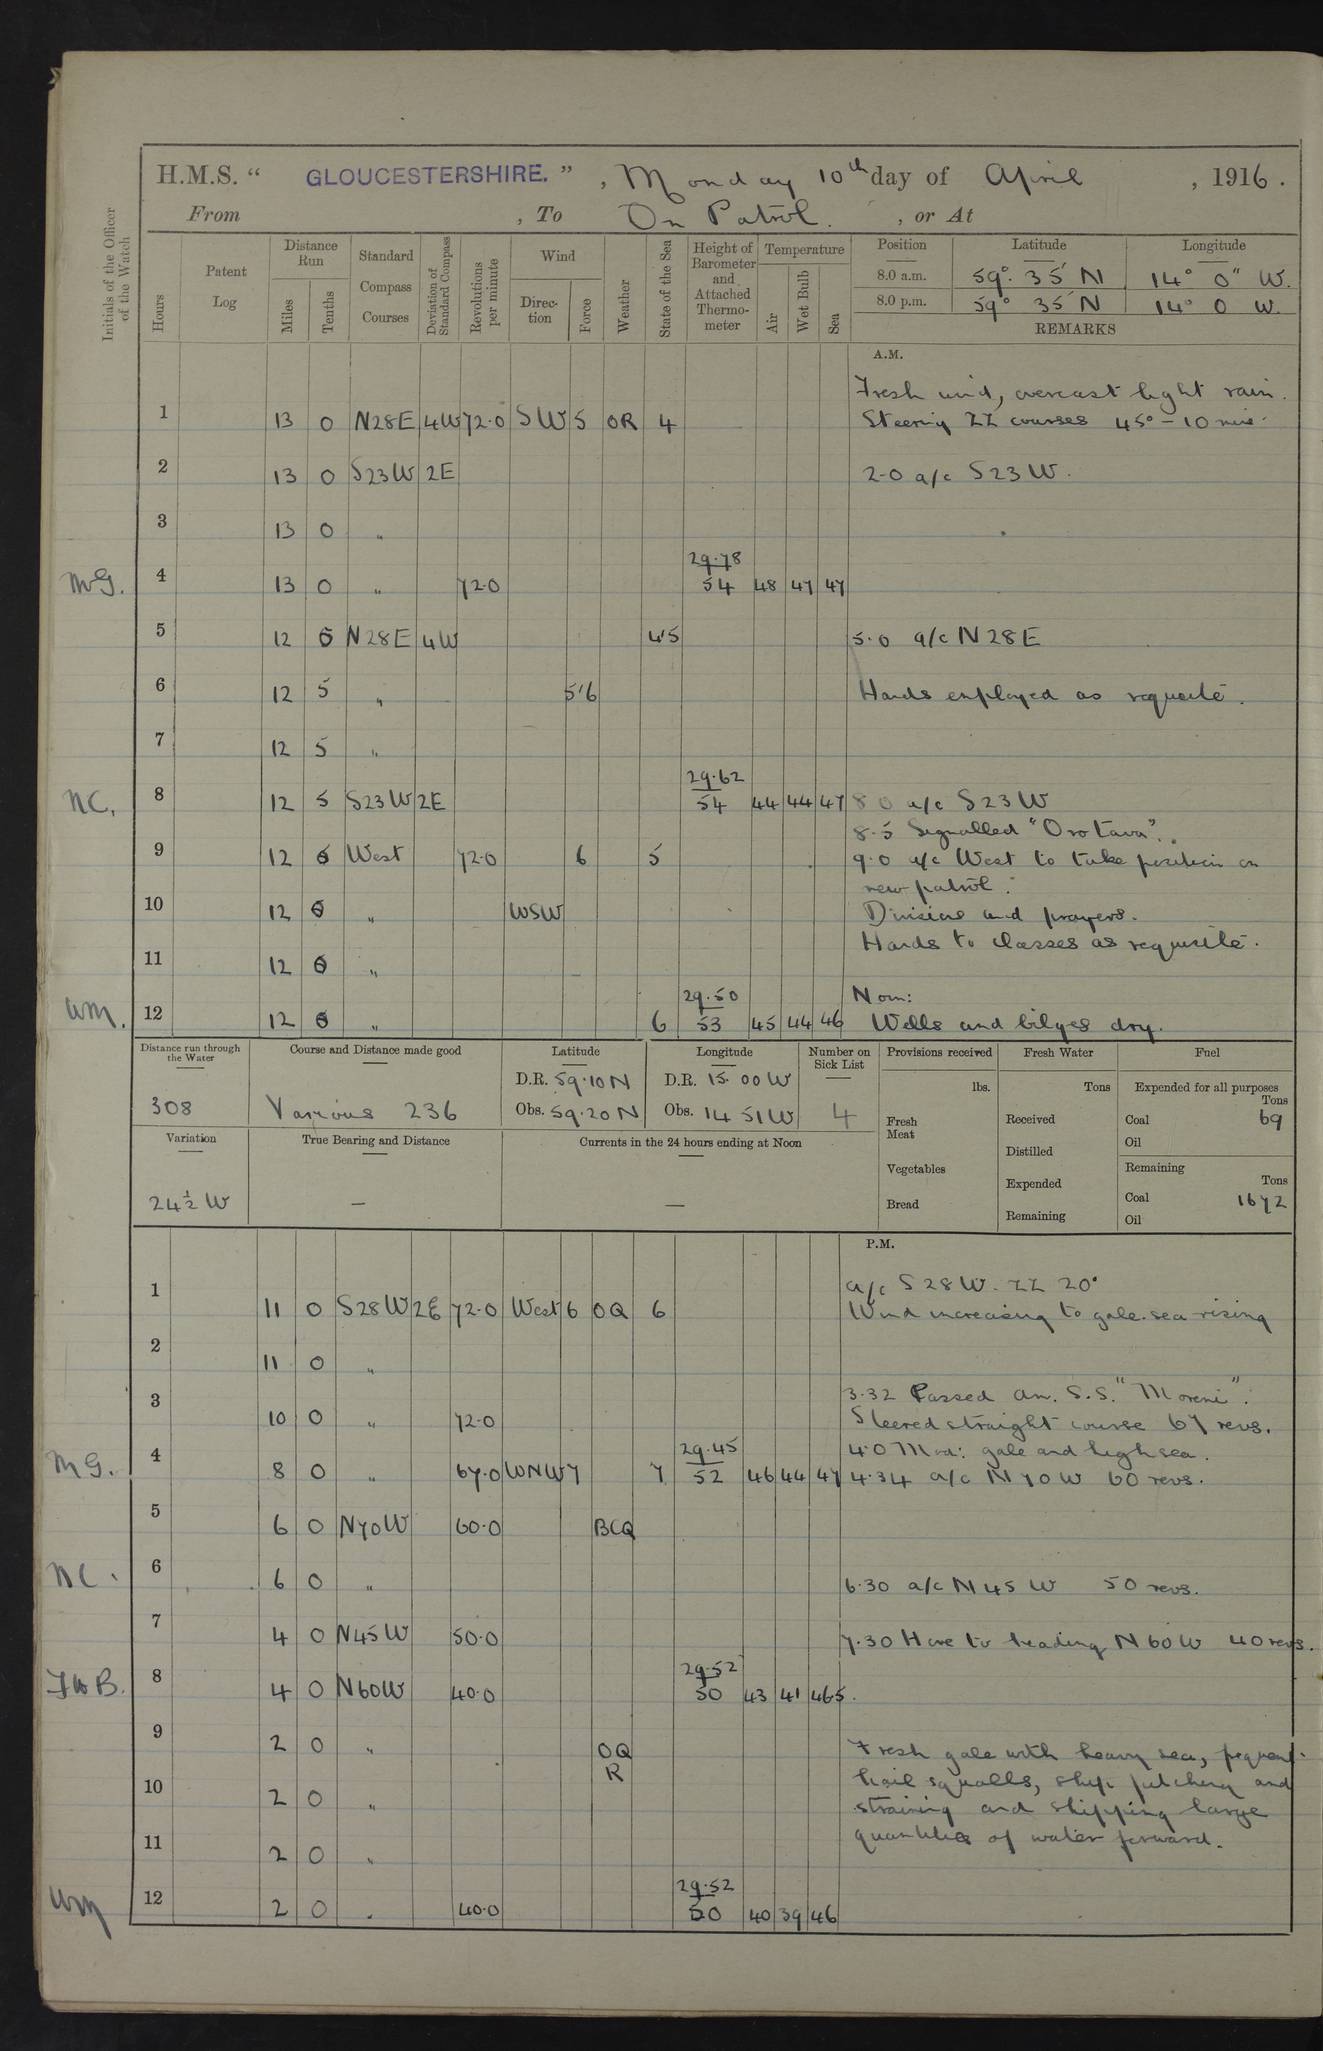 H.M.S. “ GLOUCESTERSHIRE. ” , Monday 10th day of April , 1916 .
From , To On Patrol. , or At
Initials of the Officer of the Watch
Hours
Patent Log
Distance Run
Miles
Tenths
Standard Compass Courses
Deviation of Standard Compass
Revolutions per minute
Wind
Direc- tion
Force
Weather
State of the Sea
Height of Barometer and Attached Thermo- meter
Temperature
Air
Wet Bulb
Sea
Position Latitude Longitude
8.0 a.m. 59° 35 N 14° 0" W.
8.0 p.m. 59° 35 N 14° 0 W.
REMARKS
A.M.
Fresh wind, overcast light rain.
1 13 0 N28E 4W 72.0 SW 5 OR 4 Steering ZZ courses 45° - 10 mins.
2 13 0 S23W 2E 2.0 a/c S23W.
3 13 0 "
29.78
MG. 4 13 0 " 72.0 54 48 47 47
5 12 5 N28E 4W 4'5 5.0 a/c N28E
6 12 5 " 5'6 Hands employed as requisite.
7 12 5 "
29.62
NC. 8 12 5 S23W 2E 54 44 44 47 8 0 a/c S23W
8.5 Signalled "Orotava".
9 12 6 West 72.0 6 5 9.0 a/c West to take position on
new patrol.
10 12 6 " WSW Divisions and prayers.
Hands to classes as requisite.
11 12 6 "
29.50 Noon:
WM. 12 12 6 " 6 53 45 44 46 Wells and bilges dry.
Distance run through the Water
Course and Distance made good
Latitude
Longitude
Number on Sick List
Provisions received
Fresh Water
Fuel
D.R. 59.10 N D.R. 15.00 W lbs. Tons Expended for all purposes Tons
308 Various 236 Obs. 59.20 N Obs. 14 51 W 4 Fresh Meat Received Coal 69
Variation True Bearing and Distance Currents in the 24 hours ending at Noon Oil
Distilled
Vegetables Remaining Tons
Expended
24½ W — — Bread Coal 1672
Remaining Oil
P.M.
a/c S28W. ZZ 20°
1 11 0 S28W 2E 72.0 West 6 OQ 6 Wind increasing to gale. sea rising
2 11 0 "
3.32 Passed Am. S.S. "Moreni".
3 10 0 " 72.0 Steered straight course 67 revs.
29.45 4.0 Mod: gale and high sea.
MG. 4 8 0 " 67.0 WNW 7 7 52 46 44 47 4.34 a/c N70W 60 revs.
5 6 0 N70W 60.0 BCQ
NC. 6 6 0 " 6.30 a/c N45W 50 revs.
7 4 0 N45W 50.0 7.30 Hove to heading N60W 40 revs.
29.52
8 4 0 N60W 40.0 50 43 41 465.
9 2 0 " OQ Fresh gale with heavy sea, frequent
R hail squalls, ship pitching and
10 2 0 " straining and shipping large
quantities of water forward.
11 2 0 "
29.52
WM 12 2 0 " 40.0 50 40 39 46